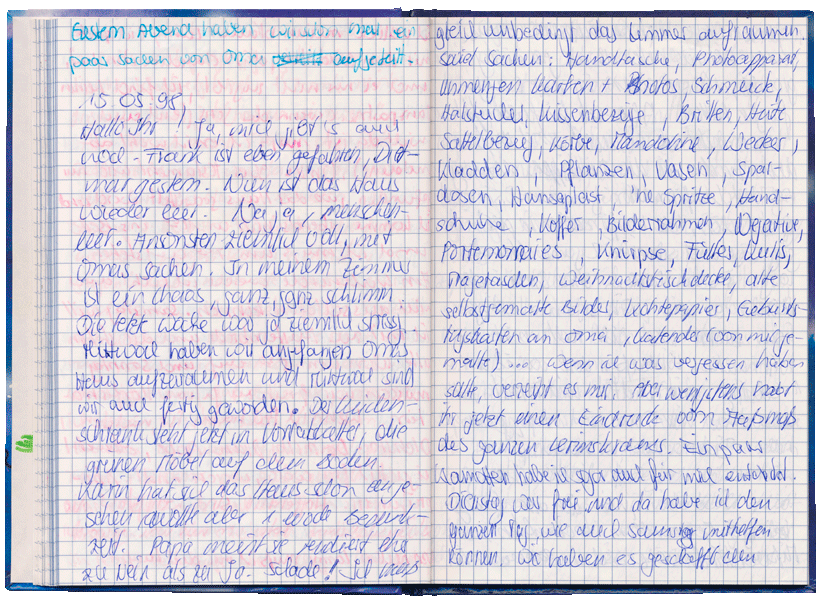 Gestern Abend haben wir schon mal ein
paar sachen von Oma aufgeteilt.
15 05 98,
Hallo Ihr! Ja, mich gibt's auch
noch - Frank ist eben gefahren, Diet-
mar gestern. Nun ist das Haus
wieder leer. Na ja, menschen-
leer. Ansonsten ziemlich voll, mit
Omas sachen. In meinem Zimmer
ist ein chaos, ganz, ganz schlimm.
Die letzte Woche war ja ziemlich stressig.
Mittwoch haben wir angefangen Omas
Haus aufzuräumen und Mittwoch sind
wir auch fertig geworden. Der
schrank steht jetzt im Vorratskeller, die
grünen Möbel auf dem Boden.
Karin hat sich das Haus schon ange-
sehen, wollte aber 1 woche Bedenk-
zeit. Papa meint sie tendiert eher
zu Nein als zu Ja. Schade! Ich muss
gleich unbedingt das Zimmer aufräumen.
Handtasche, Photoapparat,
Unmengen Karten + Photos, Schmuck,
Halstücher, Kissenbezüge, Brillen, Hüte
Sattelbezug, Körbe, Mandoline, Wecker,
Kladden, Pflanzen, Vasen, Spar-
dosen, Hansaplast, 'ne Spritze, Hand-
schuhe, Koffer, Bilderrahmen, Negative,
Portemonnaies, Knirpse, Füller, Kulis,
Tragetaschen, Weihnachtstischdecke, alte
selbstgemalte Bilder, Geburts-
tagskarten an Oma, Kalender (von mir ge-
malte)... Wenn ich was vergessen haben
sollte, verzeiht es mir. Aber wenigstens habt
ihr jetzt einen Eindruck vom
des ganzen Ein paar
Klamotten habe ich sogar auch für mich entdeckt.
Dienstag war frei und da habe ich den
ganzen Tag, wie auch samstag mithelfen
können. Wir haben es geschafft den